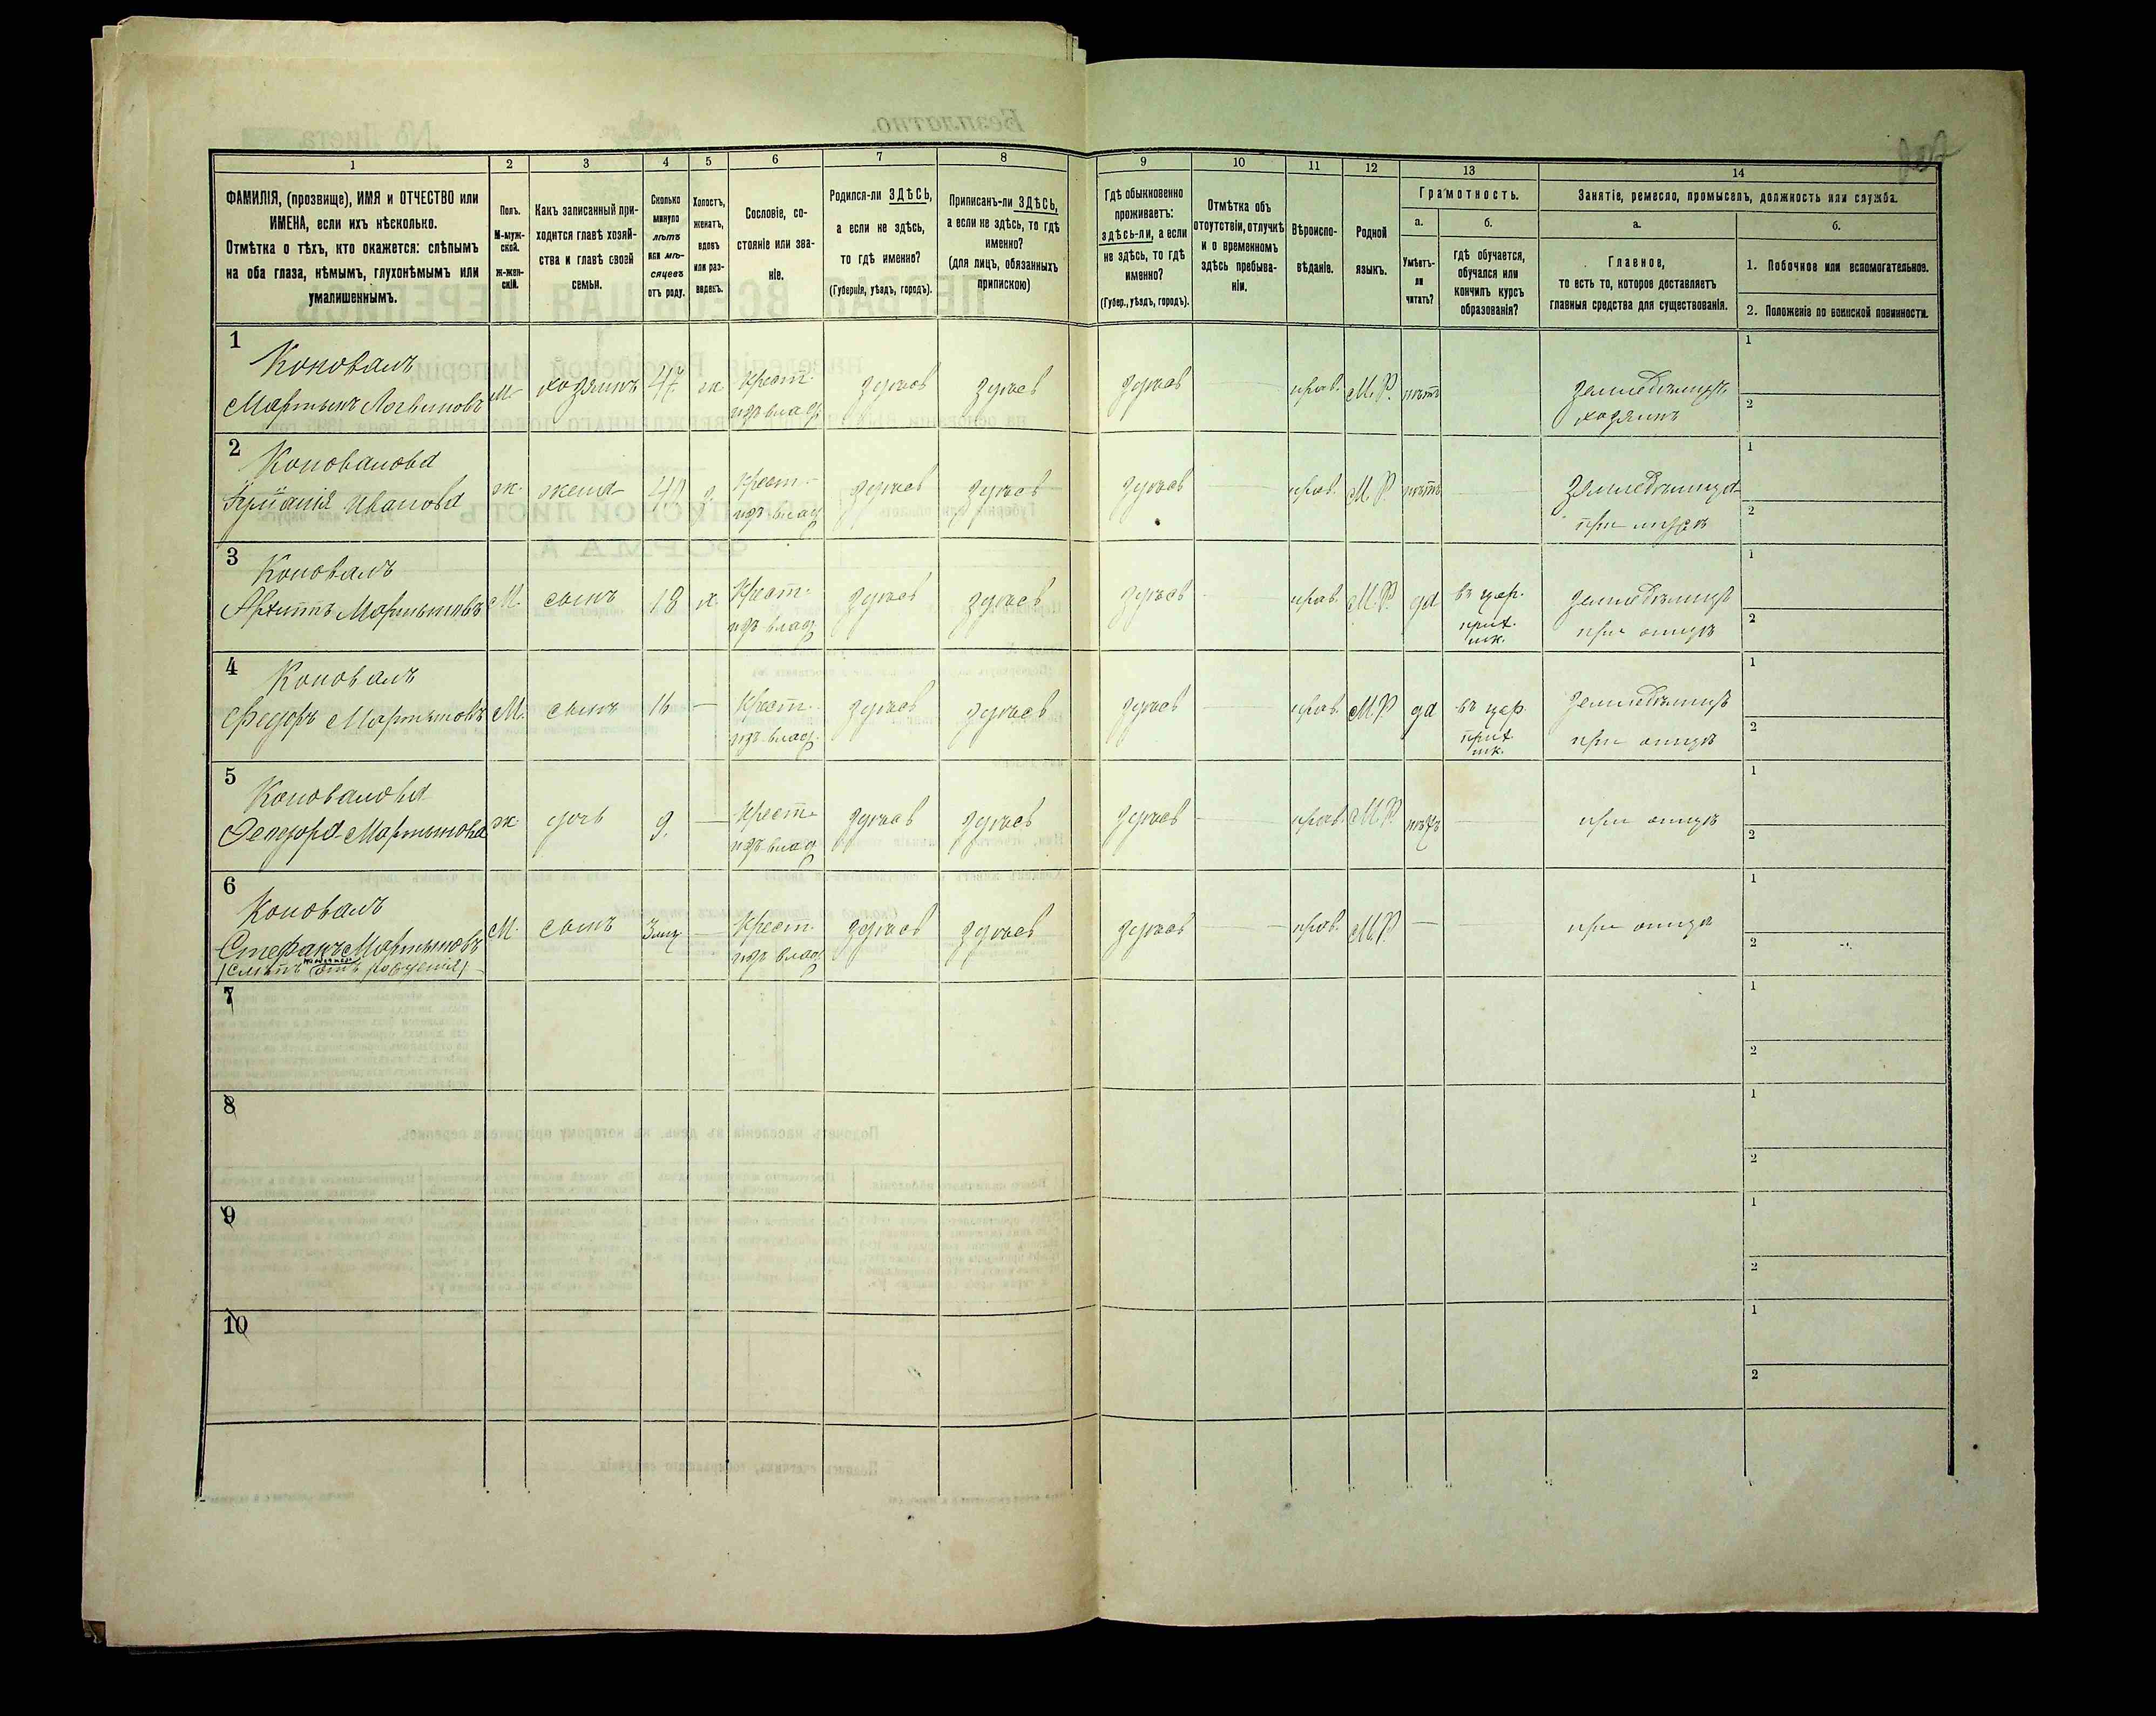 1 2 3 4 5 6 7 8 9 10 11 12 13 14
ФАМИЛІЯ, (прозвище), ИМЯ и ОТЧЕСТВО или
ИМЕНА, если ихъ нѣсколько.
Отмѣтка о тѣхъ, кто окажется: слѣпымъ
на оба глаза, нѣмымъ, глухонѣмымъ или
умалишеннымъ.
Полъ.
М-муж-
ской.
ж-жен-
скій.
Какъ записанный при-
ходится главѣ хозяй-
ства и главѣ своей
семьи.
Сколько
минуло
лѣтъ
или мѣ-
сяцевъ
отъ роду.
Холостъ,
женатъ,
вдовъ
или раз-
веденъ.
Сословіе, со-
стояніе или зва-
ніе.
Родился-ли ЗДѢСЬ,
а если не здѣсь,
то гдѣ именно?
(Губернія, уѣздъ, городъ).
Приписанъ-ли ЗДѢСЬ,
а если не здѣсь, то гдѣ
именно?
(для лицъ, обязанныхъ
припискою)
Гдѣ обыкновенно
проживаетъ:
здѣсь-ли, а если
не здѣсь, то гдѣ
именно?
(Губер., уѣздъ, городъ).
Отмѣтка объ
отсутствіи, отлучкѣ
и о временномъ
здѣсь пребыва-
ніи.
Вѣроиспо-
вѣданіе.
Родной
языкъ.
Грамотность.
а.
Умѣетъ-
ли
читать?
б.
гдѣ обучается,
обучался или
кончилъ курсъ
образованія?
Занятіе, ремесло, промыселъ, должность или служба.
а.
Главное,
то есть то, которое доставляетъ
главныя средства для существованія.
б.
1. Побочное или вспомогательное.
2. Положеніе по воинской повинности.
1
Коновалъ
Мартынъ Логвиновъ м хозяинъ 47 ж Крест. здѣсь здѣсь здѣсь прав. М.Р. нѣтъ Земледѣлецъ 1
изъ влад. хозяинъ 2
2
Коновалова
Иванова ж. жена 40 Крест. здѣсь здѣсь здѣсь прав. М.Р. нѣтъ 1
изъ влад. при мужѣ 2
3
Коновалъ
Архиппъ Мартыновъ М. сынъ 18 х. Крест. здѣсь здѣсь здѣсь прав. М.Р. да въ цер. Земледѣлецъ 1
изъ влад. прих. шк. при отцѣ 2
4
Коновалъ
Федоръ Мартыновъ М. сынъ 16 — Крест. здѣсь здѣсь здѣсь прав. М.Р. да въ цер. Земледѣлецъ 1
изъ влад. прих. шк. при отцѣ 2
5
Коновалова
Мартынова ж. дочь 9. — Крест. здѣсь здѣсь здѣсь прав. М.Р. нѣтъ при отцѣ 1
изъ влад. 2
6
Коновалъ
Стефанъ Мартыновъ М. сынъ 3 — Крест. здѣсь здѣсь здѣсь прав. М.Р. — при отцѣ 1
(слѣпъ отъ рожденія) изъ влад. 2
7 1
2
8 1
2
9 1
2
10 1
2